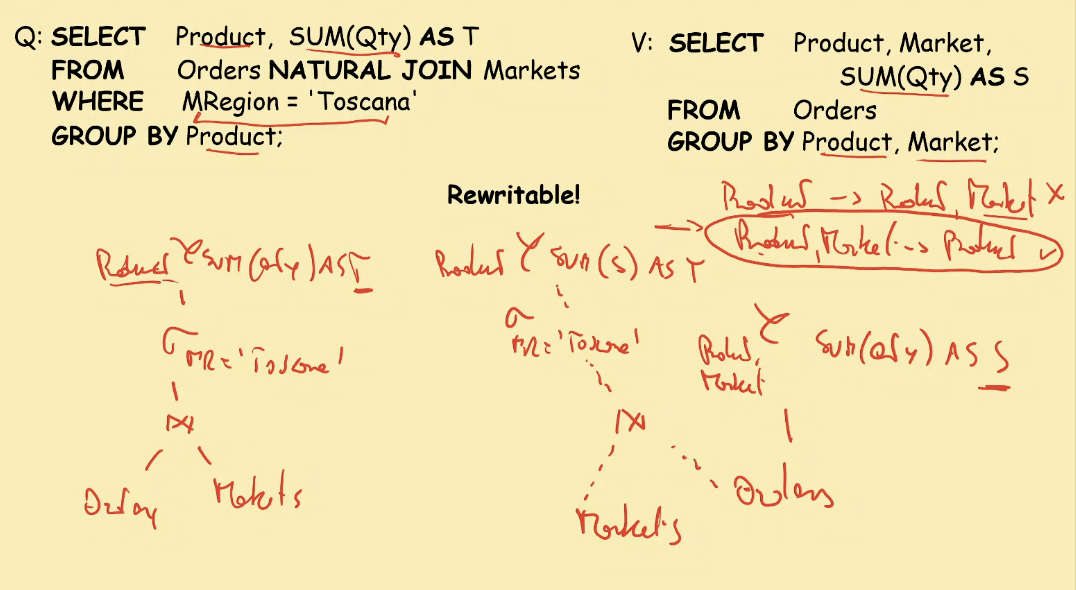 Q: SELECT Product, SUM(Qty) AS T
FROM Orders NATURAL JOIN Markets
WHERE MRegion = 'Toscana'
GROUP BY Product;
V: SELECT Product, Market,
SUM(Qty) AS S
FROM Orders
GROUP BY Product, Market;
Rewritable!
Product -> Product, Market X
-> Product, Market -> Product ✓
Product γ SUM(Qty) AS T
σ MR = 'Toscana'
⋈
Orders Markets
Product γ SUM(S) AS T
σ MR = 'Toscana'
⋈
Markets
Product, γ SUM(Qty) AS S
Market
Orders